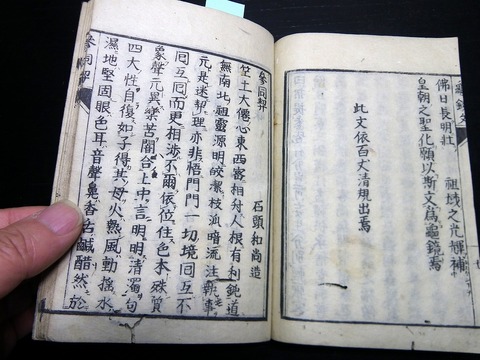 佛日長明壮　祖域之光輝補
皇朝之聖化願以斯文為龜鏡焉
此文依百丈清規出焉
參同契
石頭和尚造
竺土大僊心東西密相付人根有利鈍道
無南北祖靈源明皎潔枝派暗流注執事
元是迷契理亦非悟門門一切境囘互不
囘互囘而更相涉不爾依位住色本殊質
象聲元異樂苦闇合上中言明明清濁句
四大性自復如子得其母火熱風動搖水
濕地堅固眼色耳音聲鼻香舌鹹醋然於
參同契